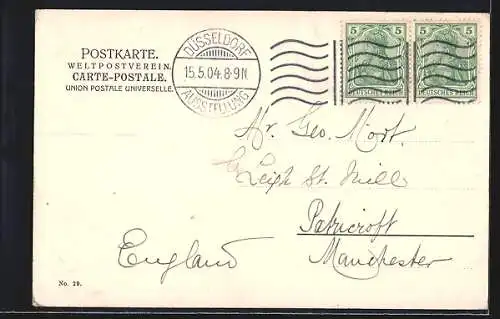 POSTKARTE.
WELTPOSTVEREIN.
CARTE-POSTALE.
UNION POSTALE UNIVERSELLE.
DÜSSELDORF
15.5.04.8-9N
AUSSTELLUNG
5 5 5 5
DEUTSCHES REICH DEUTSCHES REICH
Mr. Geo. Mort.
Leigh St. Mill
Patricroft
Manchester
England
No. 29.